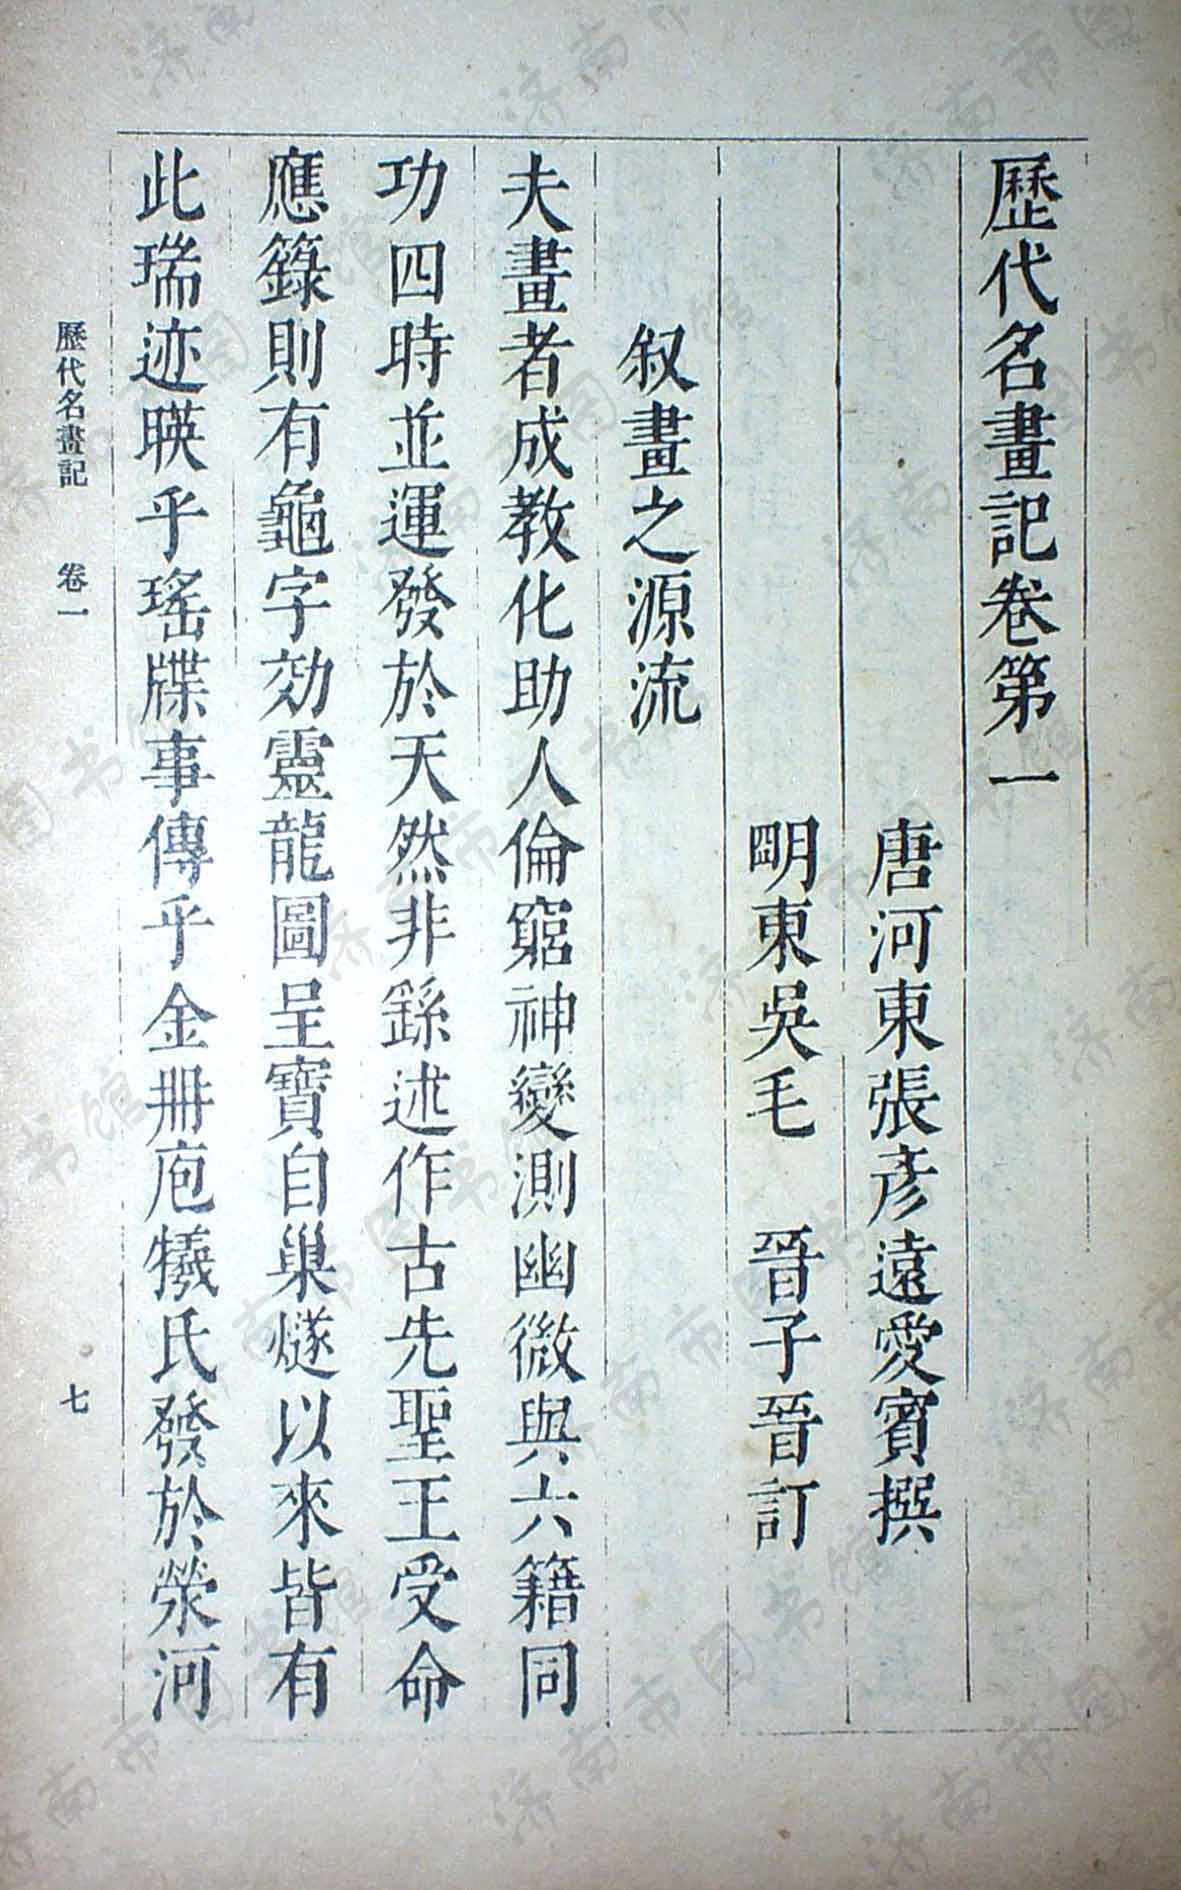 歷代名畫記卷第一
唐河東張彥遠愛賓撰
明東吳毛 晉子晉訂
叙畫之源流
夫畫者成教化助人倫窮神變測幽微與六籍同
功四時並運發於天然非繇述作古先聖王受命
應籙則有龜字効靈龍圖呈寶自巢燧以來皆有
此瑞迹暎乎瑤牒事傳乎金冊庖犧氏發於滎河
歷代名畫記 卷一 七
济南市图书馆